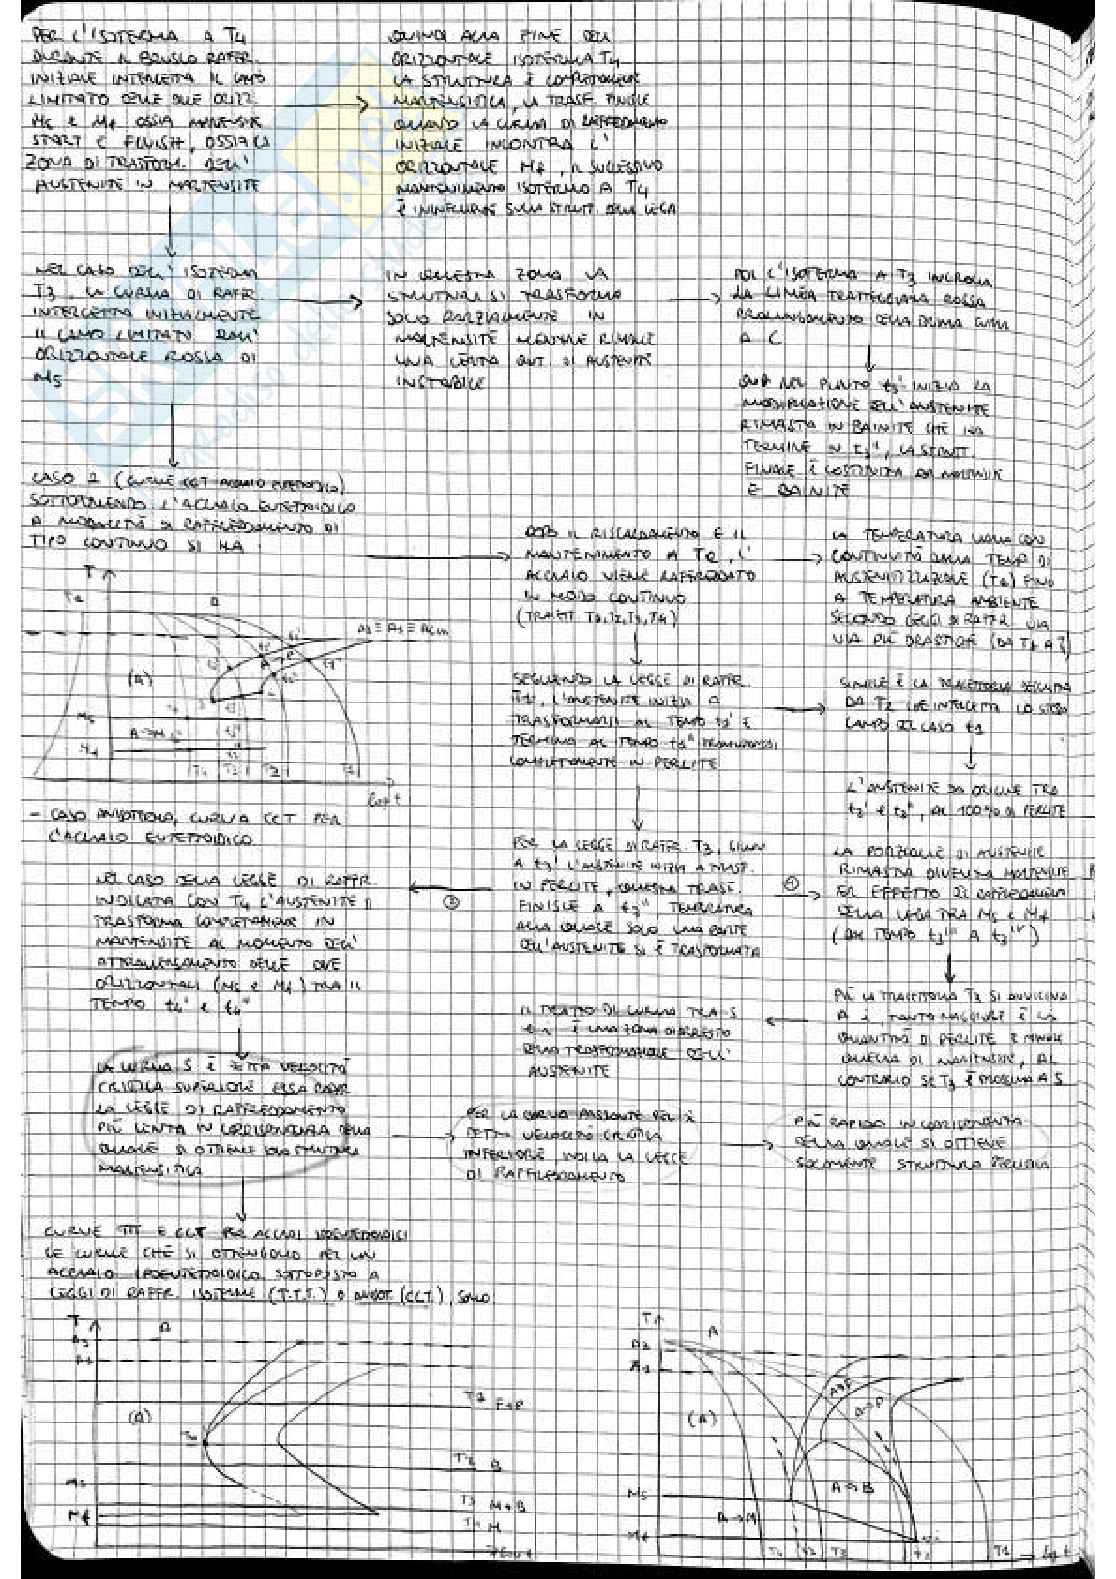 PER L'ISOTERMA A T4
DURANTE IL BRUSCO RAFFR.
INIZIALE INTERCETTA IL CAMPO
LIMITATO DALLE DUE ORIZZ.
Ms E Mf OSSIA MARTENSITE
START E FINISH, OSSIA LA
ZONA DI TRASFORM. DELL'
AUSTENITE IN MARTENSITE
QUINDI ALLA FINE DELL'
ORIZZONTALE ISOTERMA T4
LA STRUTTURA È COMPLETAMENTE
MARTENSITICA, LA TRASF. FINISCE
QUANDO LA CURVA DI RAFFREDDAMENTO
INIZIALE INCONTRA L'
ORIZZONTALE Mf, IL SUCCESSIVO
MANTENIMENTO ISOTERMO A T4
È ININFLUENTE SULLA STRUTT. DELLA LEGA
NEL CASO DELL'ISOTERMA
T3, LA CURVA DI RAFFR.
INTERCETTA INIZIALMENTE
IL CAMPO LIMITATO DALL'
ORIZZONTALE ROSSA DI
Ms
IN QUESTA ZONA LA
STRUTTURA SI TRASFORMA
SOLO PARZIALMENTE IN
MARTENSITE MENTRE RIMANE
UNA CERTA QNT. DI AUSTENITE
INSTABILE
POI L'ISOTERMA A T3 INCROCIA
LA LINEA TRATTEGGIATA ROSSA
PROLUNGAMENTO DELLA PRIMA CURVA
A C
QUI NEL PUNTO t3' INIZIA LA
MODIFICAZIONE DELL'AUSTENITE
RIMASTA IN BAINITE CHE HA
TERMINE IN t3", LA STRUTT.
FINALE È COSTITUITA DA MARTENSITE
E BAINITE
CASO 2 (CURVE CCT ACCIAIO EUTETTOIDICO)
SOTTOPONENDO L'ACCIAIO EUTETTOIDICO
A MODALITÀ DI RAFFREDDAMENTO DI
TIPO CONTINUO SI HA
DOPO IL RISCALDAMENTO E IL
MANTENIMENTO A Ta, L'
ACCIAIO VIENE RAFFREDDATO
IN MODO CONTINUO
LA TEMPERATURA VARIA CON
CONTINUITÀ DALLA TEMP. DI
AUSTENITIZZAZIONE (Ta) FINO
A TEMPERATURA AMBIENTE
SECONDO LEGGI DI RAFFR. VIA
VIA PIÙ DRASTICHE
T
Ta
A
A3 ≡ A1 ≡ Acm
(A)
Ms
A→M
Mf
T4
T3
T2
T1
Log t
SEGUENDO LA LEGGE DI RAFFR.
T1, L'AUSTENITE INIZIA A
TRASFORMARSI AL TEMPO t1' E
TERMINA AL TEMPO t1" TRASFORMANDOSI
COMPLETAMENTE IN PERLITE
SIMILE È LA TRAIETTORIA SEGUITA
DA T2 CHE INTERCETTA LO STESSO
CAMPO DEL CASO t1
L'AUSTENITE DÀ ORIGINE TRA
t2' E t2", AL 100% DI PERLITE
- CASO ANISOTERMO, CURVA CCT PER
L'ACCIAIO EUTETTOIDICO
PER LA LEGGE DI RAFFR. T3, GIUNTI
A t3' L'AUSTENITE INIZIA A TRASF.
IN PERLITE, QUESTA TRASF.
FINISCE A t3", TEMPERATURA
ALLA QUALE SOLO UNA PARTE
DELL'AUSTENITE SI È TRASFORMATA
LA PORZIONE DI AUSTENITE
RIMASTA DIVENTA MARTENSITE
PER EFFETTO DI RAFFREDDAMENTO
DELLA LEGA TRA Ms E Mf
(DAL TEMPO t3''' A t3'ᵛ)
NEL CASO DELLA LEGGE DI RAFFR.
INDICATA CON T4 L'AUSTENITE SI
TRASFORMA COMPLETAMENTE IN
MARTENSITE AL MOMENTO DELL'
ATTRAVERSAMENTO DELLE DUE
ORIZZONTALI (Ms E Mf) TRA IL
TEMPO t4' E t4"
PIÙ LA TRAIETTORIA T3 SI AVVICINA
A i, TANTO MAGGIORE È LA
QUANTITÀ DI PERLITE E MINORE
QUELLA DI MARTENSITE, AL
CONTRARIO SE T3 È PROSSIMA A S
IL TRATTO DI CURVA TRA S
E i È UNA ZONA DI ARRESTO
DELLA TRASFORMAZIONE DELL'
AUSTENITE
LA CURVA S È DETTA VELOCITÀ
CRITICA SUPERIORE ESSA
LA LEGGE DI RAFFREDDAMENTO
PIÙ LENTA IN CORRISPONDENZA DELLA
QUALE SI OTTIENE STRUTTURA
MARTENSITICA
PER LA CURVA PASSANTE PER i È
DETTA VELOCITÀ CRITICA
INFERIORE INDICA LA LEGGE
DI RAFFREDDAMENTO
PIÙ RAPIDA IN CORRISPONDENZA
DELLA QUALE SI OTTIENE
SOLAMENTE STRUTTURA PERLITICA
CURVE TTT E CCT PER ACCIAI IPOEUTETTOIDICI
LE CURVE CHE SI OTTENGONO PER UN
ACCIAIO IPOEUTETTOIDICO SOTTOPOSTO A
LEGGI DI RAFFR. ISOTERME (T.T.T.) O ANISOT. (CCT), SONO
T
A3
A
A1
(A)
T1
F+P
T2
B
Ms
T3
M+B
Mf
T4
M
T
A3
A
A1
A→F
A→P
(A)
A→B
Ms
A→M
Mf
T4
T3
T2
T1
Log t